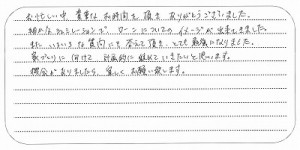 お忙しい中 貴重な お時間を 頂き ありがとうございました。
細かな シュミレーションで、ローンについての イメージが 出来てきました。
また、いろいろな 質問にも 答えて 頂き、とても 勉強になりました。
家づくりに 向けて 計画的に 進めて いきたいと思います。
機会がありましたら、宜しく お願い致します。